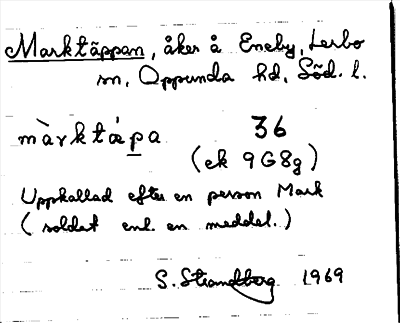 Marktäppan, åker å Eneby, Lerbo
sn, Oppunda hd, Söd. l.
màrktȧpa 36
(ek 9G8g)
Uppkallad efter en person Mark
(soldat enl. en meddel.)
S. Strandberg 1969